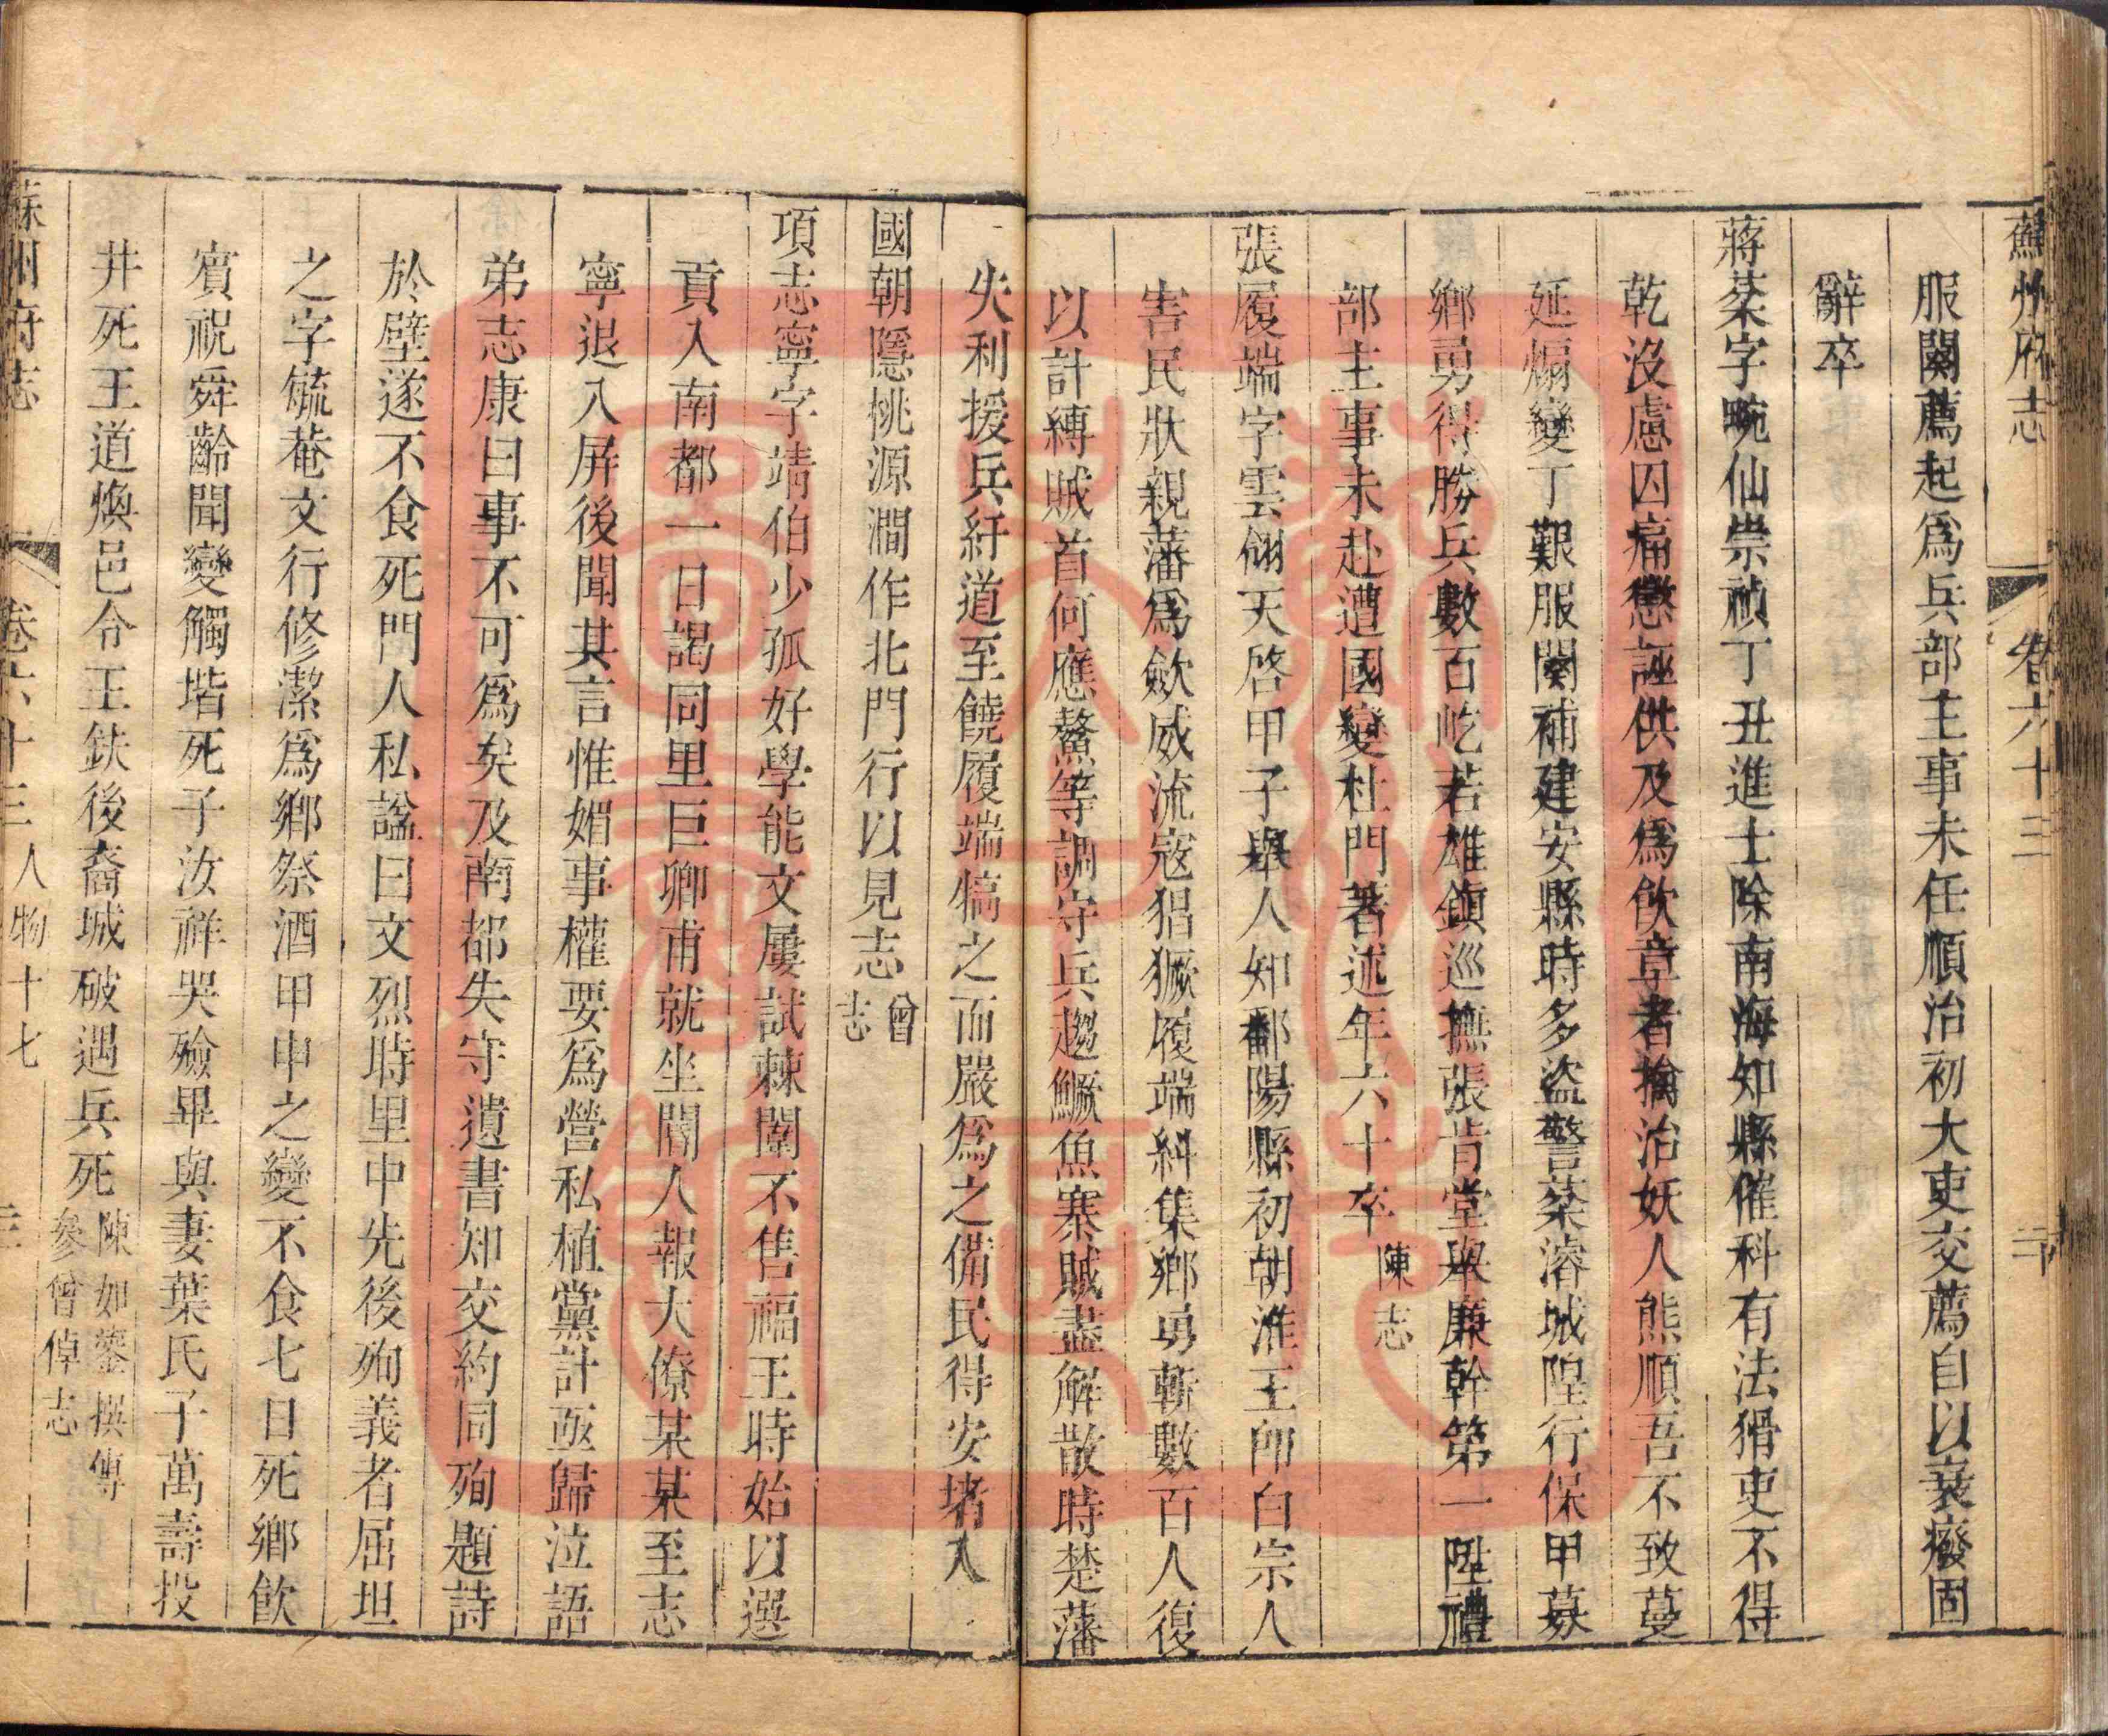 蘇州府志 卷六十三
服闋薦起爲兵部主事未任順治初大吏交薦自以衰癈固
辭卒
蔣棻字畹仙崇禎丁丑進士除南海知縣催科有法猾吏不得
乾没慮囚痛懲誣供及爲飲章者擒治妖人熊順吾不致蔓
延煽變丁艱服闋補建安縣時多盜警棻濬城隍行保甲募
鄉勇得勝兵數百屹若雄鎮巡撫張肯堂舉廉幹第一陞禮
部主事未赴遭國變杜門著述年六十卒 陳志
張履端字雲翎天啓甲子舉人知鄱陽縣初朝淮王卽白宗人
害民狀親藩爲歛威流寇猖獗履端糾集鄉勇斬數百人復
以計縛賊首何應鰲等調守兵趨鱖魚寨賊盡解散時楚藩
失利援兵紆道至饒履端犒之而嚴爲之備民得安堵入
國朝隱桃源澗作北門行以見志 曾志
項志寧字靖伯少孤好學能文屢試棘闈不售福王時始以選
貢入南都一日謁同里巨卿甫就坐閽人報大僚某某至志
寧退入屏後聞其言惟媚事權要爲營私植黨計亟歸泣語
弟志康曰事不可爲矣及南都失守遺書知交約同殉題詩
於壁遂不食死門人私諡曰文烈時里中先後殉義者屈坦
之字毓菴文行修潔爲鄉祭酒甲申之變不食七日死鄉飲
賓祝舜齡聞變觸堦死子汝祥哭殮畢與妻葉氏子萬壽投
井死王道煥邑令王鈇後裔城破遇兵死 陳如鎏撰傳
參曾倬志
蘇州府志 卷六十三 人物十七